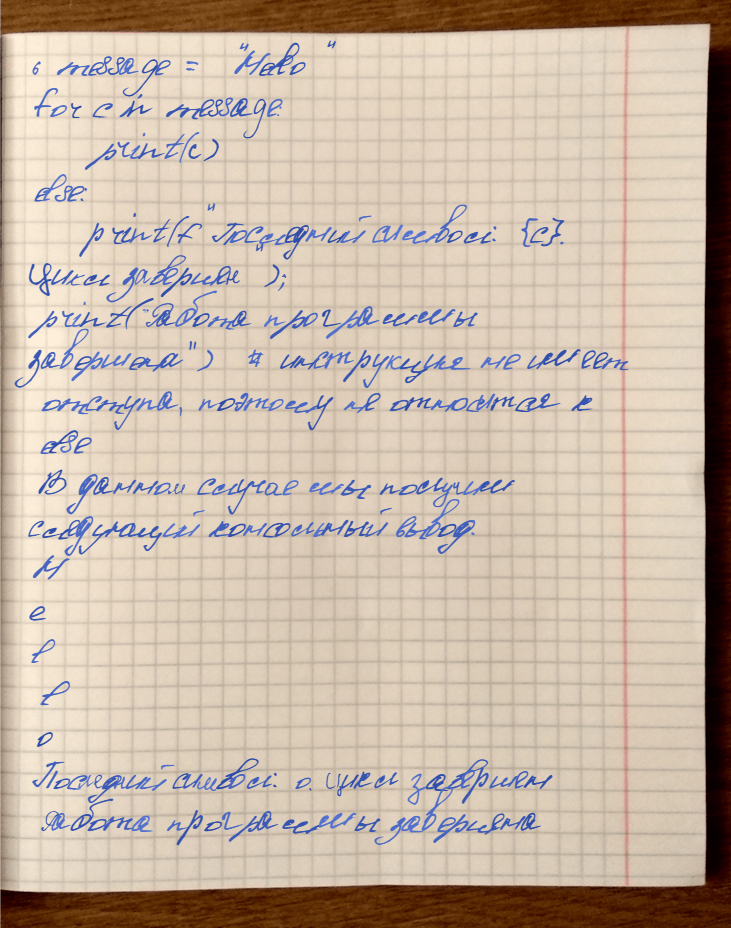 6 message = "Hello"
for c in message:
print(c)
else:
print(f"Последний символ: {c}.
Цикл завершен");
print("Работа программы
завершена") # инструкция не имеет
отступа, поэтому не относится к
else
В данном случае мы получим
следующий консольный вывод:
H
e
l
l
o
Последний символ: o. Цикл завершен
Работа программы завершена